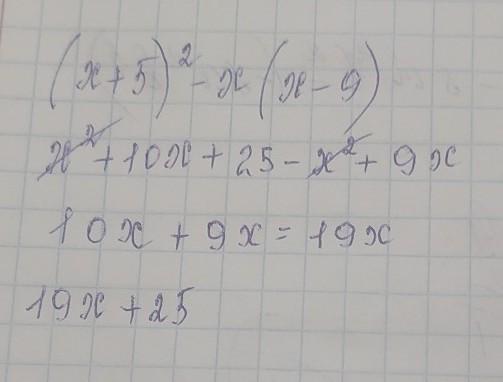 (x+5)² - x(x-9)
x² + 10x + 25 - x² + 9x
10x + 9x = 19x
19x + 25